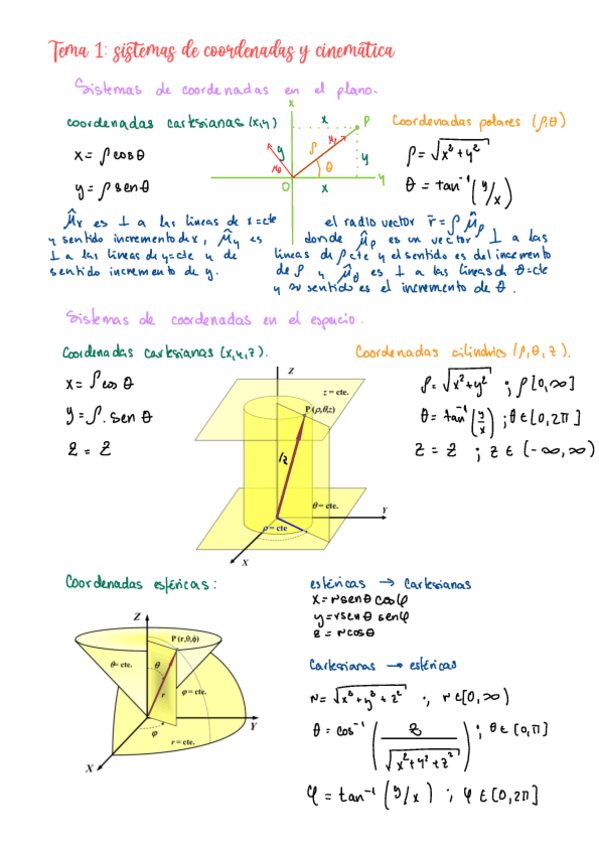 Tema 1: sistemas de coordenadas y cinemática
Sistemas de coordenadas en el plano.
coordenadas cartesianas (x,y)
x = ρ cos θ
y = ρ sen θ
x
x
P
y
ρ
μρ
μθ
θ
y
O
x
y
Coordenadas polares (ρ,θ)
ρ = √x²+y²
θ = tan⁻¹ (y/x)
μ̂x es ⊥ a las lineas de x=cte
y sentido incremento de x, μ̂y es
⊥ a las lineas de y=cte y de
sentido incremento de y.
el radio vector r̄ = ρ μ̂ρ
donde μ̂ρ es un vector ⊥ a las
lineas de ρ cte y el sentido es del incremento
de ρ y μ̂θ es ⊥ a las lineas d θ=cte
y su sentido es el incremento de θ.
Sistemas de coordenadas en el espacio.
Coordenadas cartesianas (x,y,z).
x = ρ cos θ
y = ρ. sen θ
z = z
Z
z = cte.
P (ρ,θ,z)
θ = cte.
Y
ρ = cte
X
Coordenadas cilindrics (ρ,θ,z).
ρ = √x²+y² ; ρ[0,∞]
θ = tan⁻¹ (y/x) ; θ∈[0,2π]
z = z ; z ∈ (-∞,∞)
Coordenadas esféricas:
Z
P (r,θ,ϕ)
θ= cte.
θ
r
φ = cte.
φ
r = cte.
Y
X
esféricas → Cartesianas
x = r sen θ cos φ
y = r sen θ sen φ
z = r cos θ
Cartesianas → esféricas
r = √x²+y²+z² ; r∈[0,∞)
θ = cos⁻¹ (z/√x²+y²+z²) ; θ∈[0,π]
φ = tan⁻¹ (y/x) ; φ∈[0,2π]